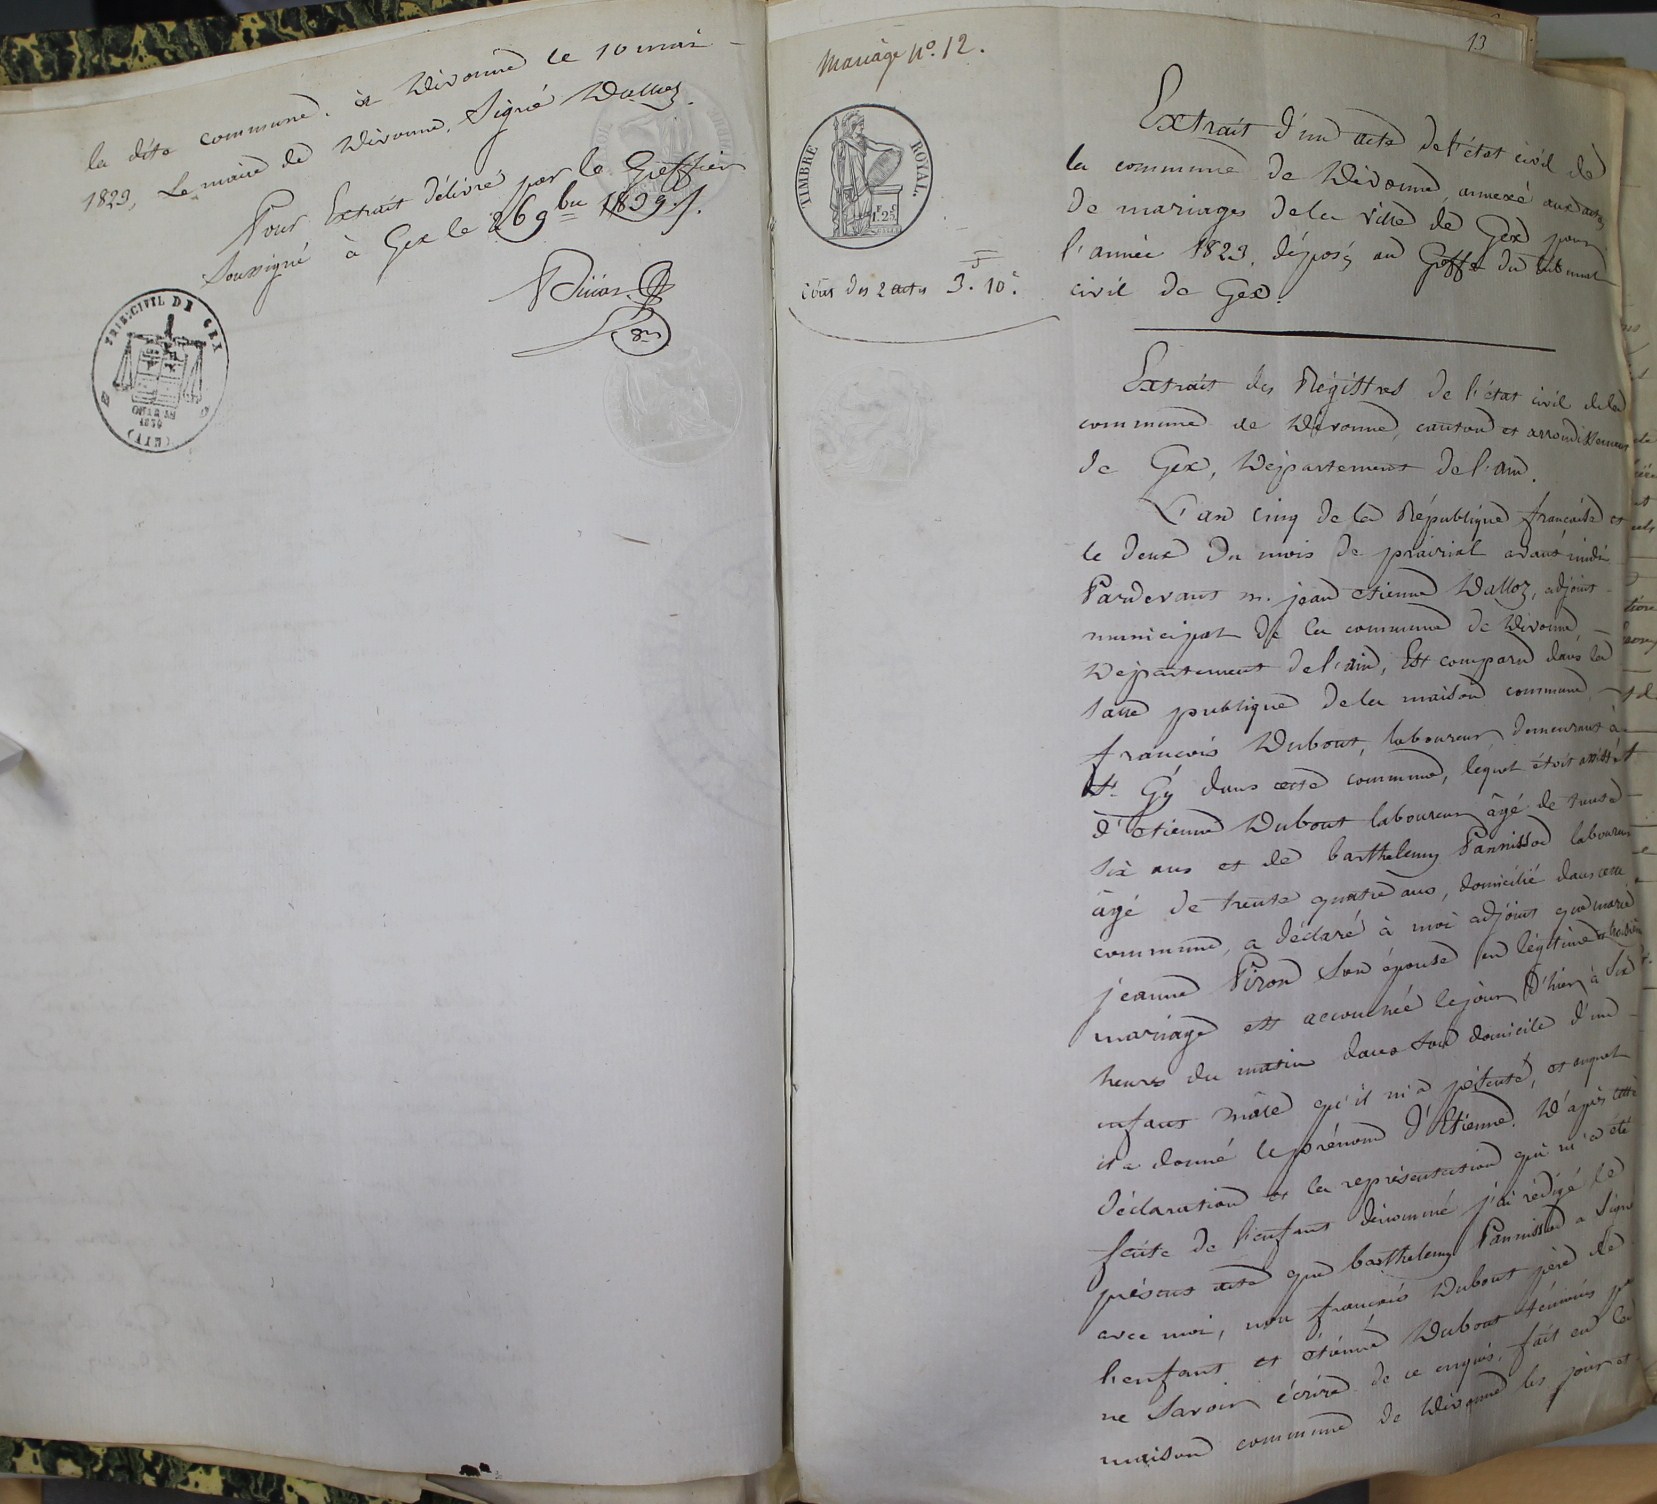 la dite commune. à Divonne le 10 mai
1823, Le maire de Divonne, Signé Dalloz.
Pour Extrait délivré par le Greffier
soussigné à Gex le 26 9bre 1839 /.
8rs
TRIB: CIVIL DE GEX
(AIN)
Mariage No. 12.
TIMBRE ROYAL.
1F. 25C
coût des 2 actes 3f. 10c.
13
Extrait d'un acte de l'état civil de
la commune de Divonne, annexé aux actes
de mariages de la ville de Gex pour
l'année 1823, déposés au Greffe du tribunal
civil de Gex.
Extrait des Régistres de l'état civil de la
commune de Divonne, canton et arrondissement
de Gex, Département de l'ain.
L'an cinq de la République française et
le deux du mois de prairial avant midi
Pardevant m. jean etienne Dalloz, adjoint
municipal de la commune de Divonne,
Département de l'ain, Est comparu dans la
salle publique de la maison commune,
françois Dubout, laboureur, demeurant à
St. Gy dans cette commune, lequel étoit assisté
d'etienne Dubout laboureur âgé de trente
six ans et de barthelemy Pannissod laboureur
âgé de trente quatre ans, domicilié dans cette
commune, a déclaré à moi adjoint que marie
jeanne Piron son épouse en légitime
mariage est accouchée le jour d'hier à six
heures du matin dans son domicile d'un
enfant mâle qu'il m'a présenté, et auquel
il a donné le prénom d'Etienne. D'après cette
déclaration et la représentation qui m'a été
faite de l'enfant dénommé j'ai rédigé le
présent acte que barthelemy Pannissod a signé
avec moi, non françois Dubout père de
l'enfant et étienne Dubout témoins pour
ne savoir écrire de ce enquis, fait en la
maison commune de Divonne les jour et